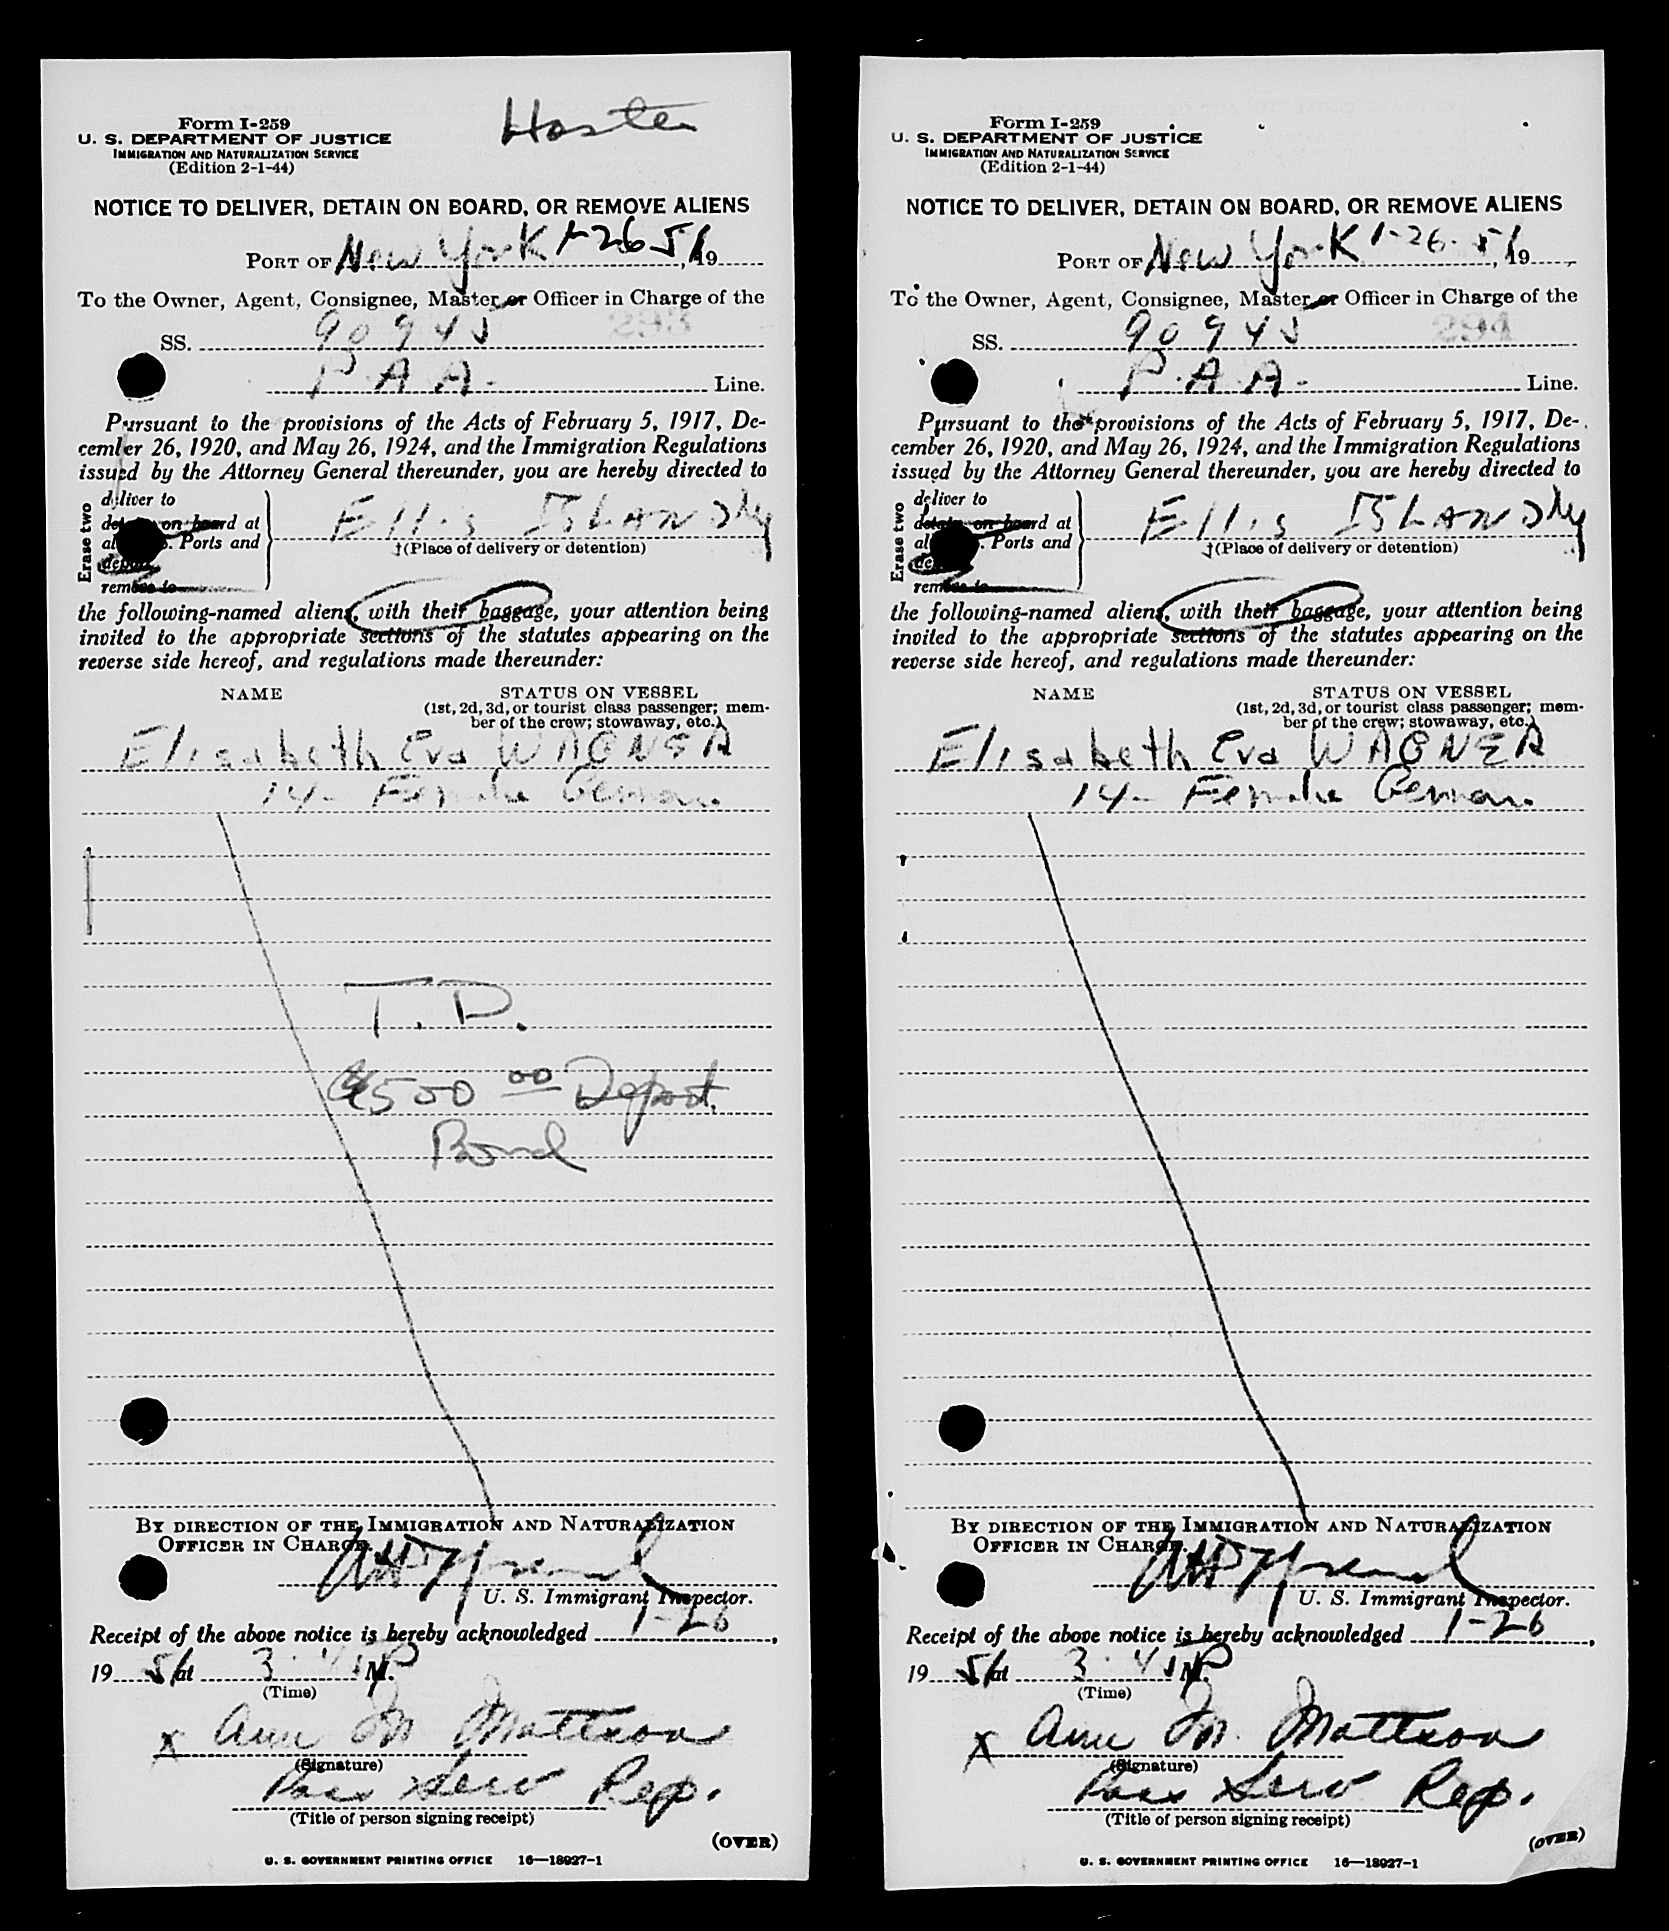 Form I-259
U. S. DEPARTMENT OF JUSTICE
IMMIGRATION AND NATURALIZATION SERVICE
(Edition 2-1-44)
NOTICE TO DELIVER, DETAIN ON BOARD, OR REMOVE ALIENS
PORT OF New York 1-26 51, 19
To the Owner, Agent, Consignee, Master or Officer in Charge of the
SS. 90945
P.A.A. Line.
Pursuant to the provisions of the Acts of February 5, 1917, De-
cember 26, 1920, and May 26, 1924, and the Immigration Regulations
issued by the Attorney General thereunder, you are hereby directed to
Erase two
deliver to
on board at
Ports and
remove to
Ellis ISLAND NY
†(Place of delivery or detention)
the following-named aliens, with their baggage, your attention being
invited to the appropriate sections of the statutes appearing on the
reverse side hereof, and regulations made thereunder:
NAME STATUS ON VESSEL
(1st, 2d, 3d, or tourist class passenger; mem-
ber of the crew; stowaway, etc.)
Elisabeth Eva WAGNER
14- Female German
T.D.
$500 00 Deport.
Bond
BY DIRECTION OF THE IMMIGRATION AND NATURALIZATION
OFFICER IN CHARGE.
U. S. Immigrant Inspector.
Receipt of the above notice is hereby acknowledged 1-26,
19 51 at 3:45 P M.
(Time)
x Ann M. Mattson
(Signature)
Pass Serv Rep.
(Title of person signing receipt)
(OVER)
U. S. GOVERNMENT PRINTING OFFICE 16—18927-1
Form I-259
U. S. DEPARTMENT OF JUSTICE
IMMIGRATION AND NATURALIZATION SERVICE
(Edition 2-1-44)
NOTICE TO DELIVER, DETAIN ON BOARD, OR REMOVE ALIENS
PORT OF New York 1-26-51, 19
To the Owner, Agent, Consignee, Master or Officer in Charge of the
SS. 90945 294
P.A.A. Line.
Pursuant to the provisions of the Acts of February 5, 1917, De-
cember 26, 1920, and May 26, 1924, and the Immigration Regulations
issued by the Attorney General thereunder, you are hereby directed to
Erase two
deliver to
on board at
Ports and
remove to
Ellis ISLAND NY
†(Place of delivery or detention)
the following-named aliens, with their baggage, your attention being
invited to the appropriate sections of the statutes appearing on the
reverse side hereof, and regulations made thereunder:
NAME STATUS ON VESSEL
(1st, 2d, 3d, or tourist class passenger; mem-
ber of the crew; stowaway, etc.)
Elisabeth Eva WAGNER
14- Female German
BY DIRECTION OF THE IMMIGRATION AND NATURALIZATION
OFFICER IN CHARGE.
U. S. Immigrant Inspector.
Receipt of the above notice is hereby acknowledged 1-26,
19 51 at 3:45 P M.
(Time)
x Ann M. Mattson
(Signature)
Pass Serv Rep.
(Title of person signing receipt)
(OVER)
U. S. GOVERNMENT PRINTING OFFICE 16—18927-1